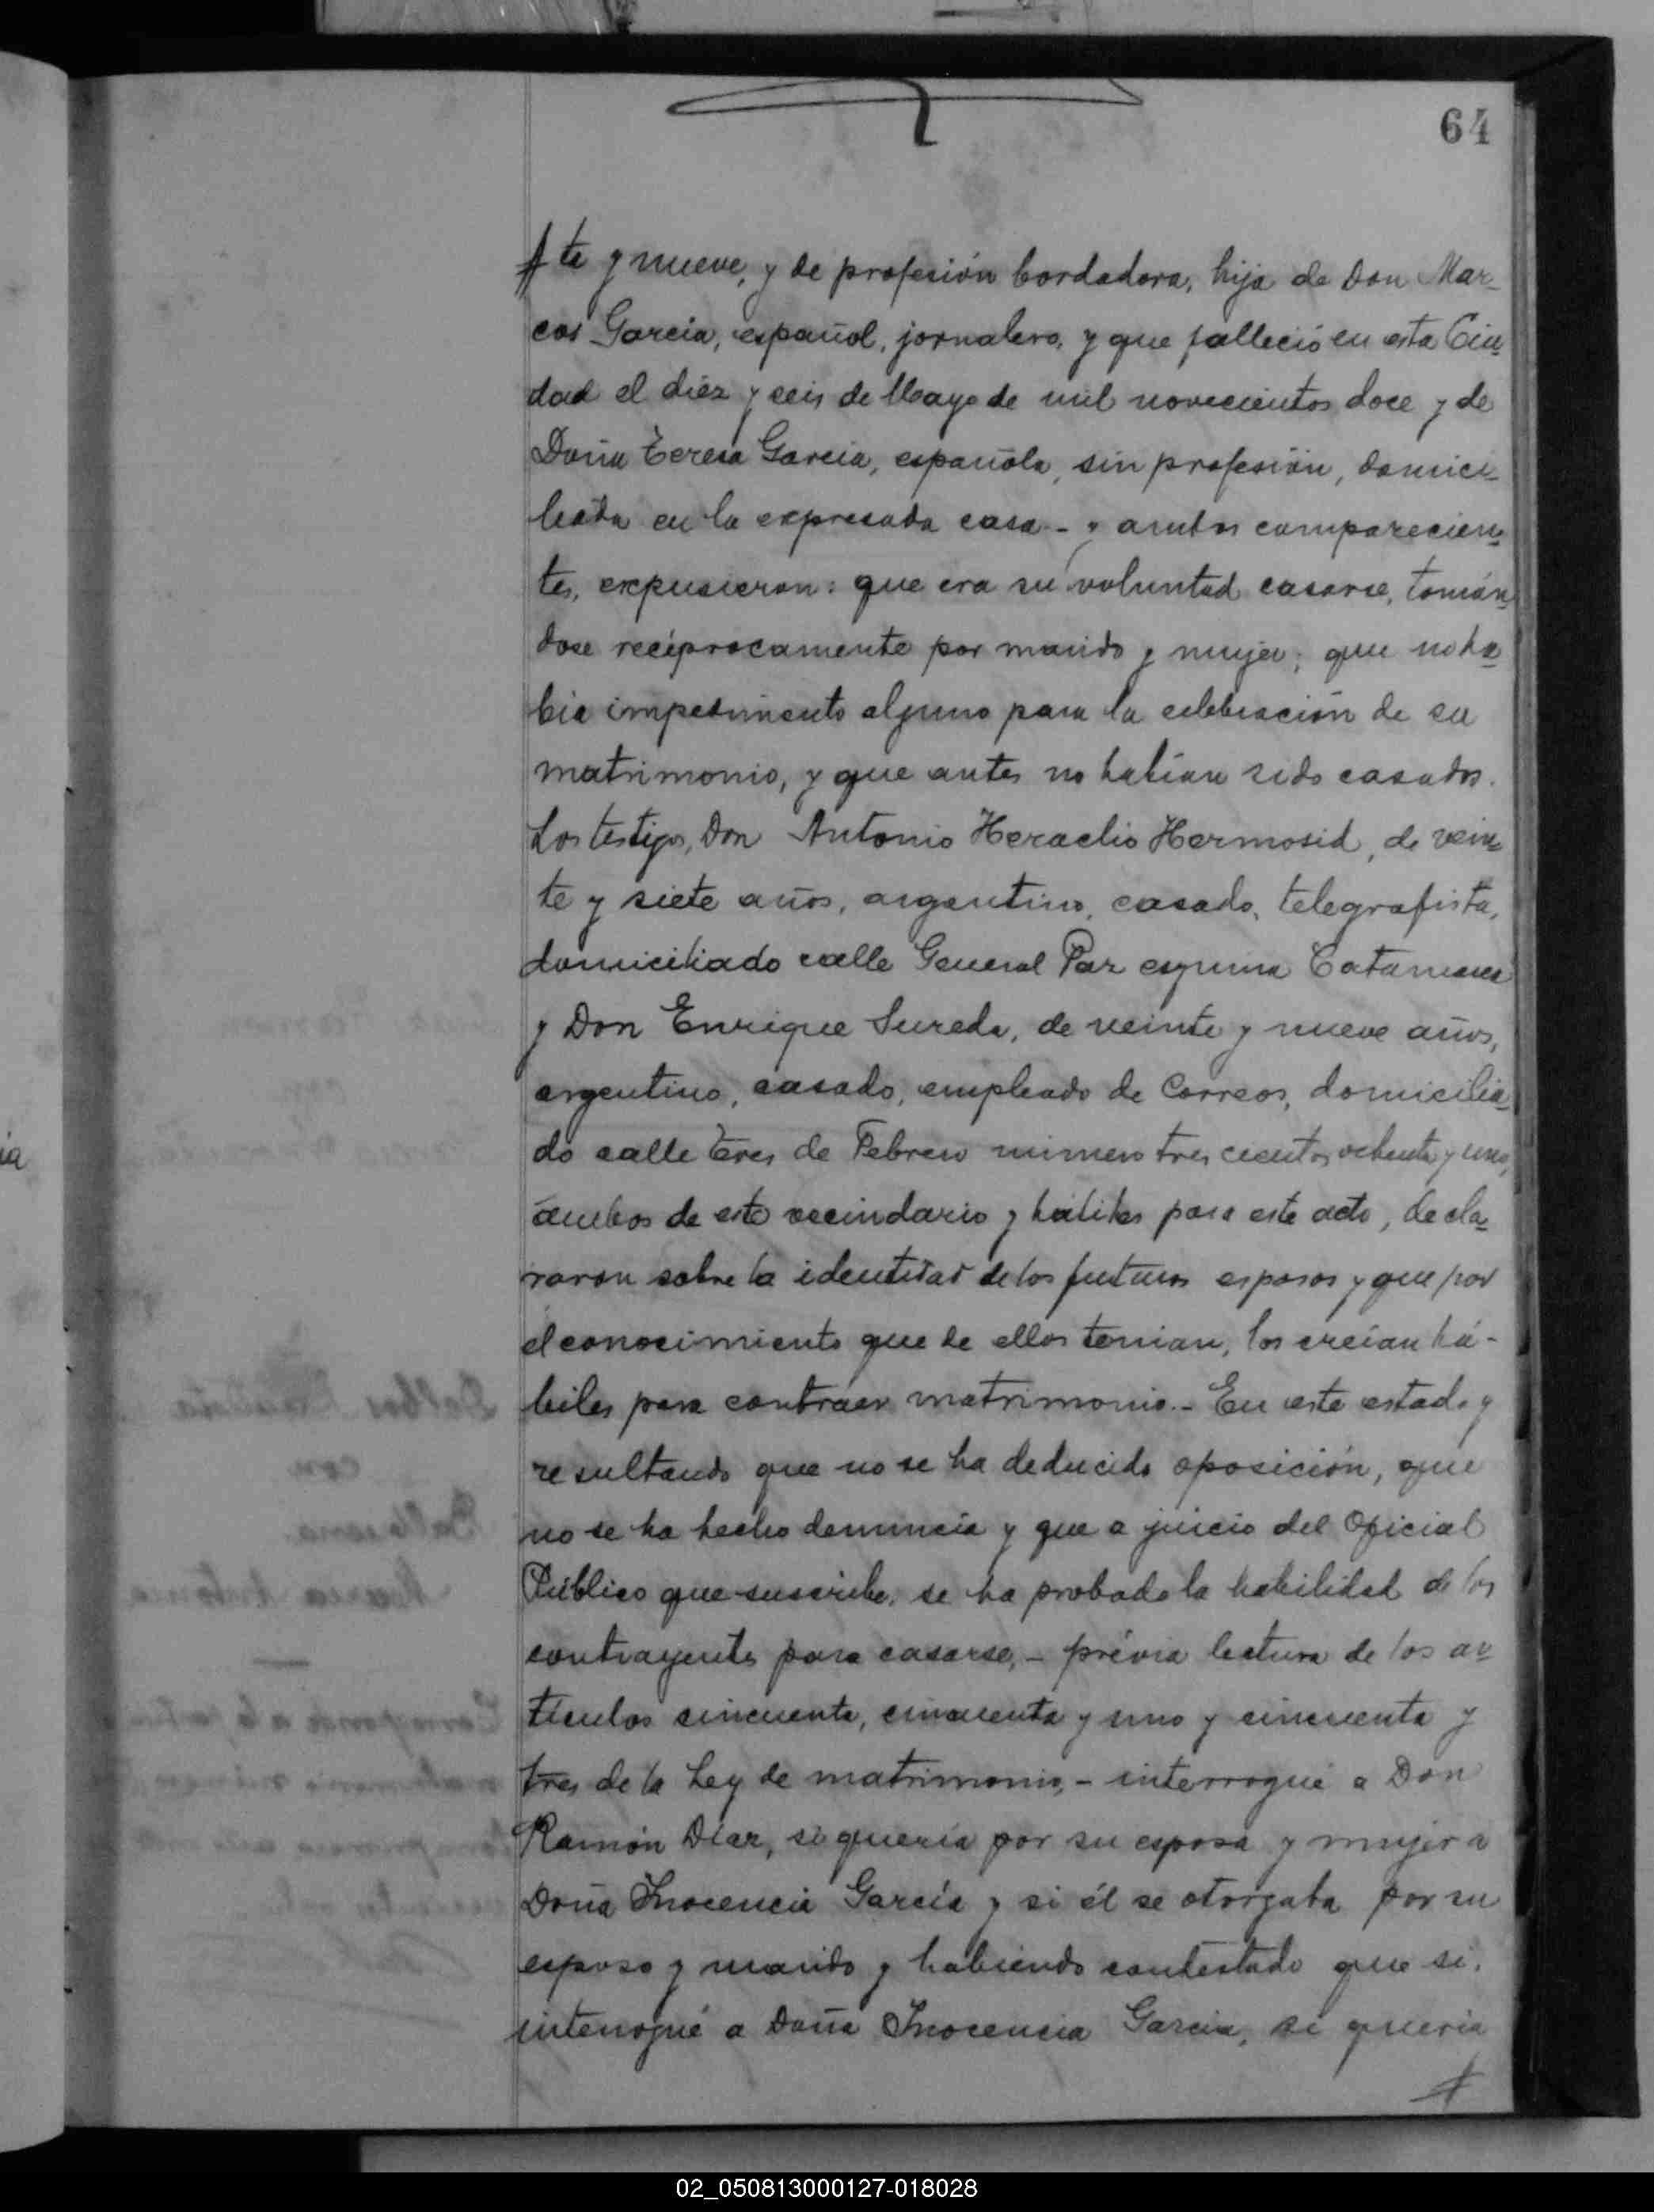 64
te y nueve, y de profesión bordadora, hija de Don Mar-
cos García, español, jornalero, y que falleció en esta Ciu-
dad el diéz y seis de Mayo de mil novecientos doce y de
Doña Teresa García, española, sin profesión, domici-
liada en la expresada casa - y ambos comparecien-
tes, expusieron: que era su voluntad casarse, tomán-
dose recíprocamente por marido y mujer; que no ha-
bía impedimento alguno para la celebración de su
matrimonio, y que antes no habían sido casados.
Los testigos, Don Antonio Heraclio Hermosid, de vein-
te y siete años, argentino, casado, telegrafista,
domiciliado calle General Paz esquina Catamarca
y Don Enrique Sureda, de veinte y nueve años,
argentino, casado, empleado de Correos, domicilia-
do calle tres de Febrero número tres cientos ochenta y uno,
ámbos de este vecindario y hábiles para este acto, decla-
raron sobre la identidad de los futuros esposos y que por
el conocimiento que de ellos tenían, los creían há-
biles para contraer matrimonio.- En este estado y
resultando que no se ha deducido oposición, que
no se ha hecho denuncia y que a juicio del Oficial
Público que suscribe, se ha probado la habilidad de los
contrayentes para casarse,- prévia lectura de los ar-
tículos cincuenta, cincuenta y uno y cincuenta y
tres de la Ley de matrimonio,- interrogué a Don
Ramón Díaz, si quería por su esposa y mujer a
Doña Inocencia García y si él se otorgaba por su
esposo y marido y habiendo contestado que sí,
interrogué a Doña Inocencia García, si quería
02_050813000127-018028